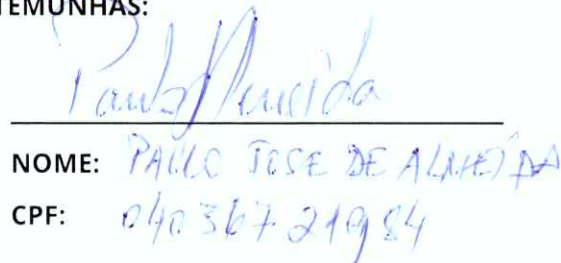 TEMUNHAS:
Paulo Almeida
NOME: PAULO JOSE DE ALMEIDA
CPF: 04036721984